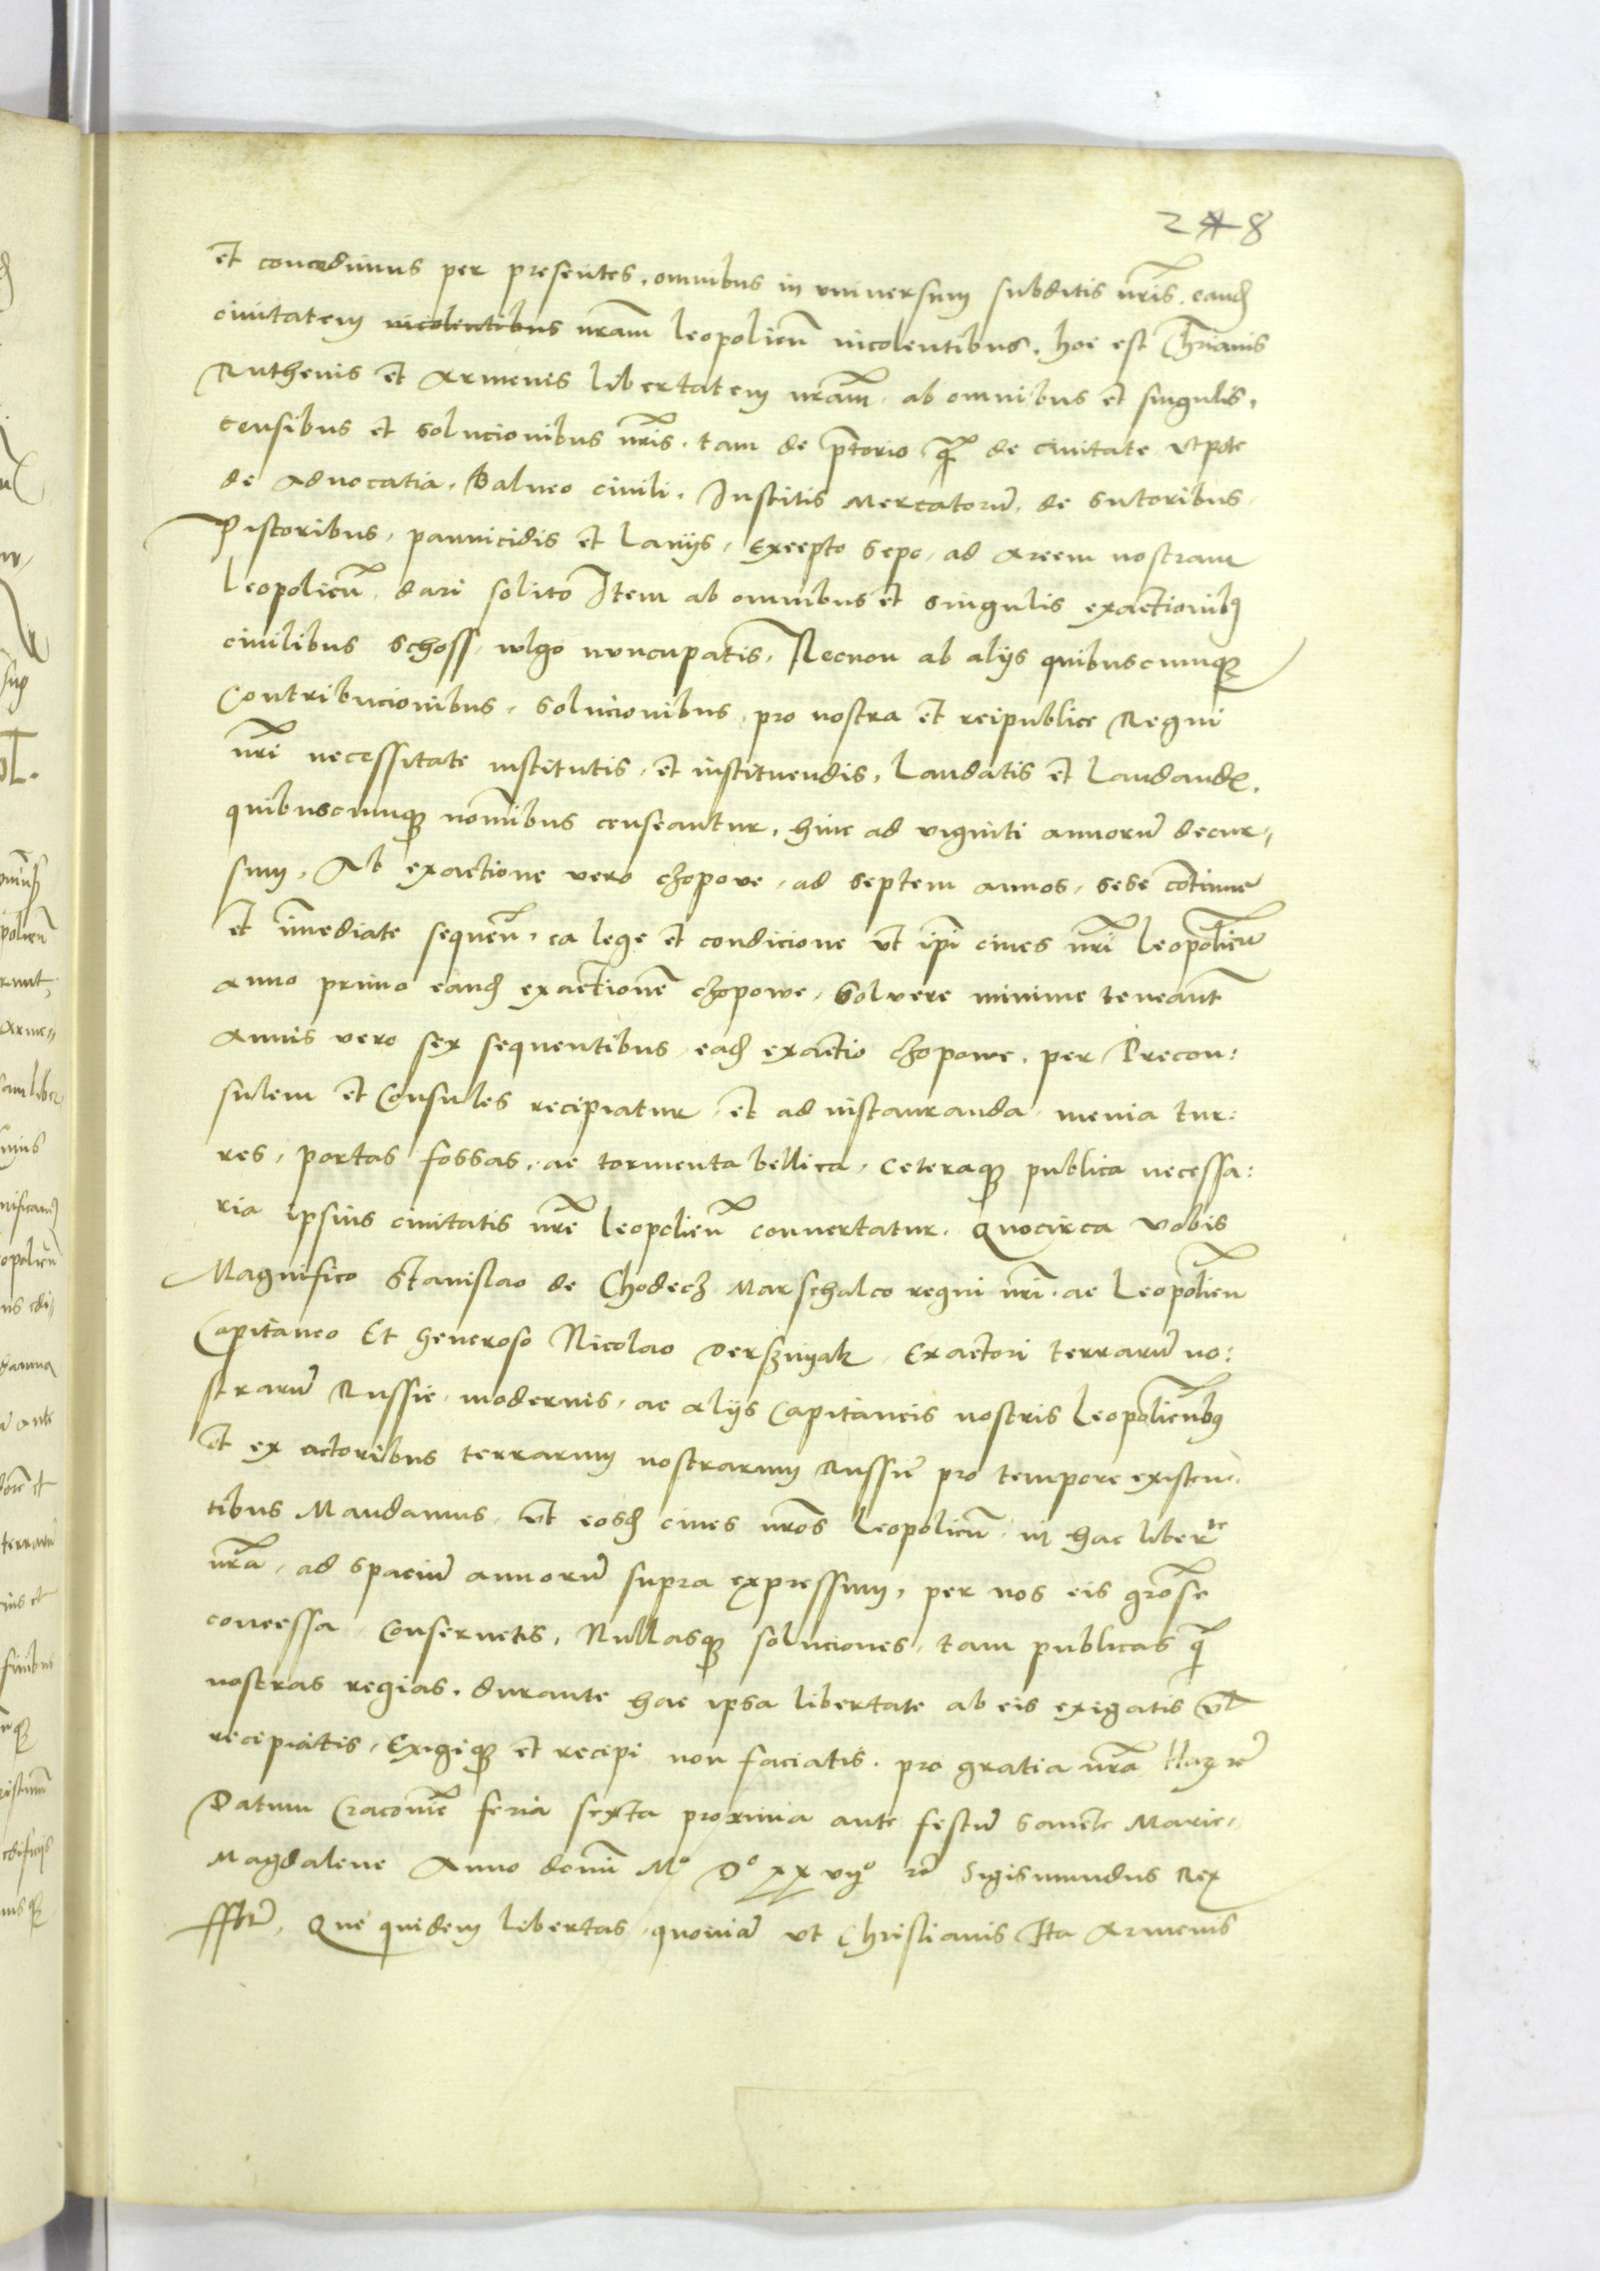 248
et concedimus per presentes, omnibus in vniuersum subditis nris, eand
ciuitatem incolentibus nram leopolien incolentibus, hoc est Chrianis
Ruthenis et Armenis libertatem nram, ab omnibus et singulis,
censibus et solucionibus nris, tam de ptorio q de ciuitate vtpote
de Aduocatia, Balneo ciuili, Institis Mercatorū, de sutoribus
Pistoribus, pannicidis et Lanijs, Excepto sepo, ad Arcem nostram
Leopolien, dari solito Item ab omnibus et singulis exactionib9
ciuilibus schoss, wlgo nuncupatis, Necnon ab alijs quibuscumq
Contribucionibus, solucionibus, pro nostra et reipublice Regni
nri necessitate institutis, et instituendis, Laudatis et Laudand,
quibuscumq nomibus censeantur, hinc ad viginti annorū decur,,
sum, Ab exactione vero czopove, ad septem annos, sese cotinue
et imediate sequen, ea lege et condicione vt ipi ciues nri Leopolien
Anno primo eand exactionē czopowe, Soluere minime teneant
Annis vero sex sequentibus, ead exactio czopowe, per Precon:
sulem et Consules recipiatur, et ad instauranda, menia tur:
res, portas fossas, ac tormenta bellica, ceteraq publica necessa:
ria ipsius ciuitatis nre leopolien conuertatur. Quocirca vobis
Magnifico Stanislao de Chodecz Marschalco regni nri, ac Leopolien
Capitaneo Et Generoso Nicolao Dersznyak, Exactori terrarū no:
strarū Russie, modernis, ac alijs Capitaneis nostris Leopolienb9
et ex actoribus terrarum nostrarum Russie pro tempore existen,
tibus Mandamus, vt eosd ciues nros Leopolien, in hac liberte
nra, ad spaciū annorū supra expressum, per nos eis grose
concessa, Conseruetis, Nullasq soluciones, tam publicas q
nostras regias, durante hac ipsa libertate ab eis exigatis vl
recipiatis, Exigiq et recipi non faciatis, pro gratia nra
Datum Cracouie feria sexta proxima ante festū sancte Marie,,
Magdalene Anno domi Mo Do xx vijo Sigismundus Rex
Que quidem libertas, quoniā vt Christianis Ita Armenis